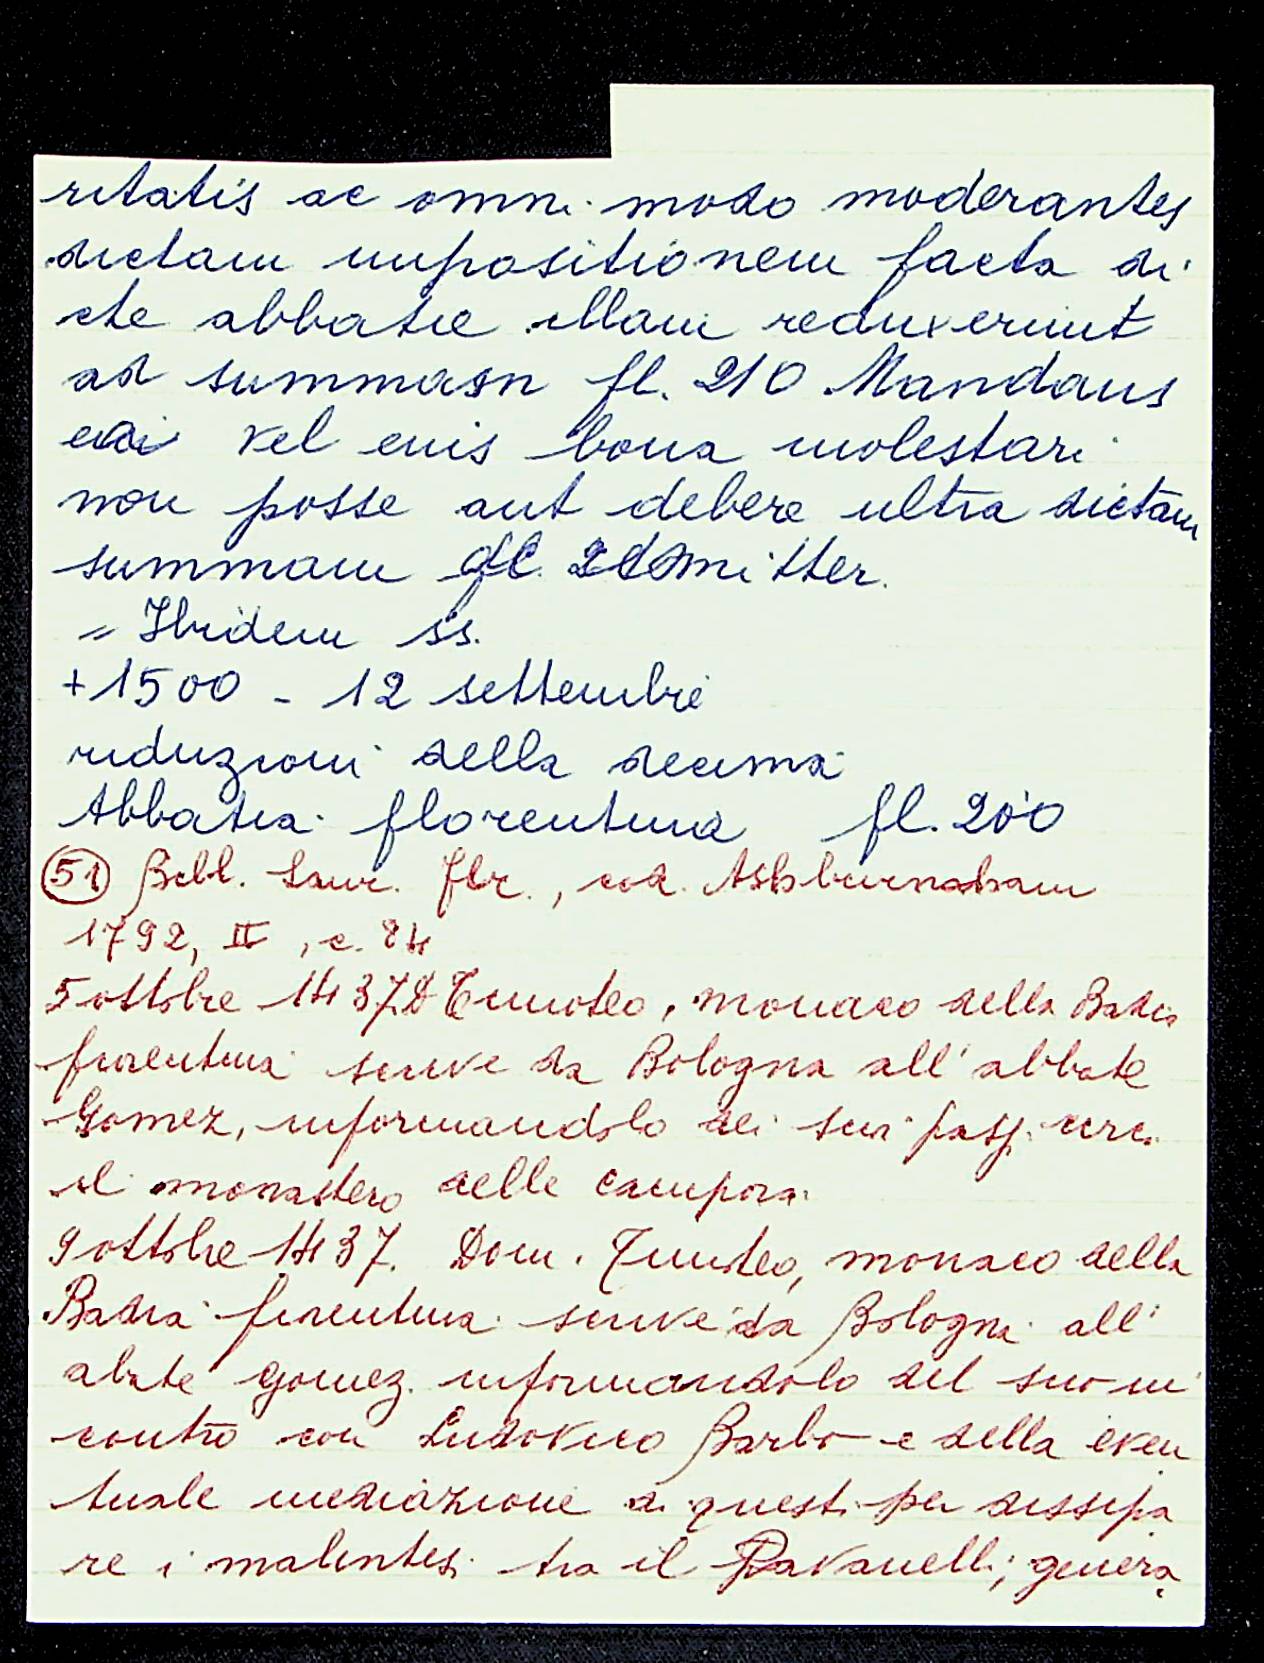 ritatis ac omni modo moderantes
dictam impositionem facta di
cte abbatie illam reduxerunt
ad summam fl. 210 Mandans
vel eius bona molestari
non posse aut debere ultra dictam
summam fl.
= Ibidem ss.
+1500 - 12 settembre
riduzioni della decima
Abbatia florentina fl. 200
(51) Bibl. Laur. Flr., cod. Ashburnham
1792, II, c. 84
5 ottobre 1437 D Timoteo, monaco della Badia
fiorentina scrive da Bologna all'abbate
Gomez, informandolo dei suoi passi circa
il monastero delle Campora
9 ottobre 1437. Dom. Timoteo, monaco della
Badia fiorentina scrive da Bologna all'
abate Gomez informandolo del suo in
contro con Ludovico Barbo e della even
tuale mediazione di questi per dissipa
re i malintesi tra il Pavanelli, genera